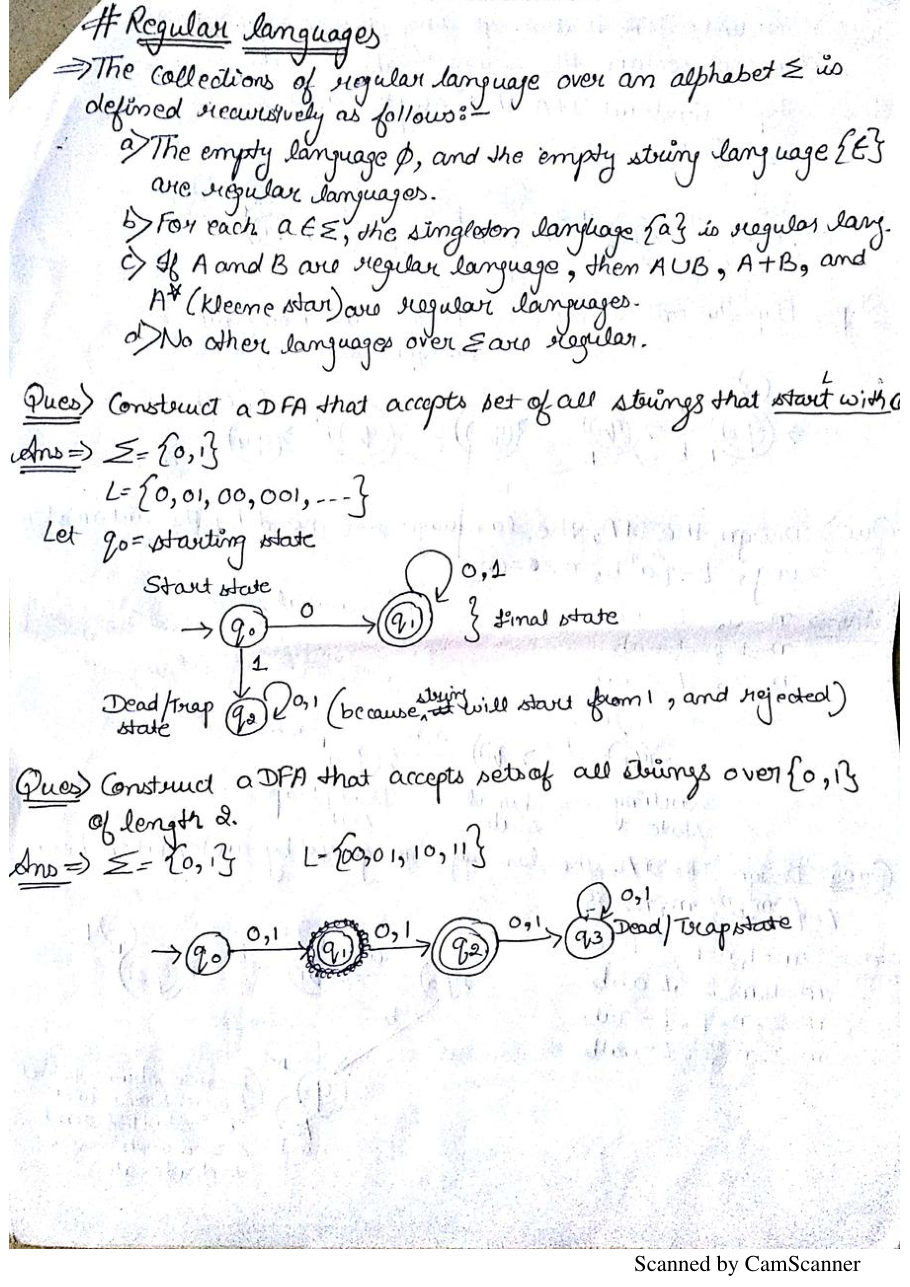 # Regular languages
⇒ The collections of regular language over an alphabet Σ is
defined recursively as follows:-
a) The empty language ϕ, and the empty string language {ϵ}
are regular languages.
b) For each a∈Σ, the singleton language {a} is regular lang.
c) If A and B are regular language, then A∪B, A+B, and
A* (Kleene star) are regular languages.
d) No other languages over Σ are regular.
L
Ques) Construct a DFA that accepts set of all strings that start with
Ans ⇒ Σ = {0,1}
L = {0, 01, 00, 001, ---}
Let q0 = starting state
Start state
0,1
→ q0 0 q1 } final state
1
Dead/Trap q2 0,1 (because string will start from 1, and rejected)
state
Ques) Construct a DFA that accepts sets of all strings over {0,1}
of length 2.
Ans ⇒ Σ = {0,1} L = {00,01,10,11}
→ q0 0,1 q1 0,1 q2 0,1 q3 0,1 Dead/Trap state
Scanned by CamScanner